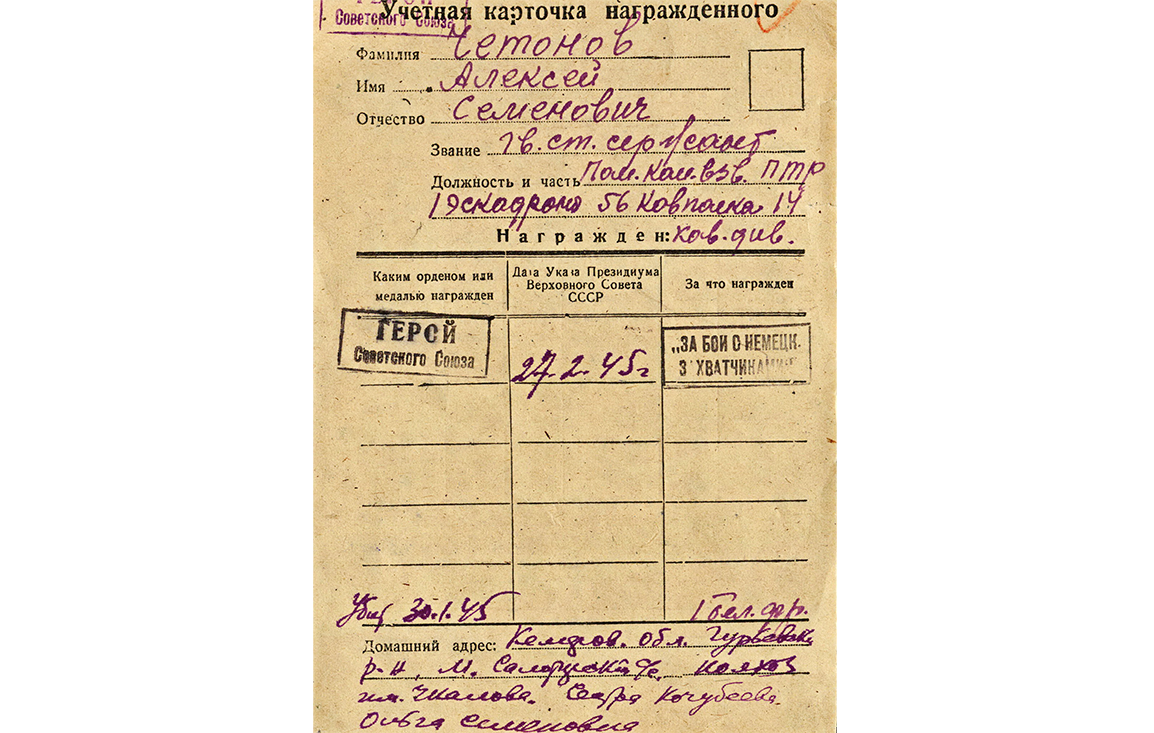 Советского Союза
Учетная карточка награжденного
Фамилия Четонов
Имя Алексей
Отчество Семенович
Звание гв. ст. сержант
Должность и часть Пом. ком. взв. ПТР
1 эскадрона 56 14
Награжден: кав. див.
Каким орденом или медалью награжден
Дата Указа Президиума Верховного Совета СССР
За что награжден
ГЕРОЙ
Советского Союза
27.2.45г
„ЗА БОИ С НЕМЕЦК.
ЗАХВАТЧИКАМИ“
Убит 30.1.45 1 Бел. фр.
Домашний адрес: Кемеров. обл. Гурьевский
р-н, М. колхоз
им. Чкалова. Сестра Кочубеева
Ольга Семеновна